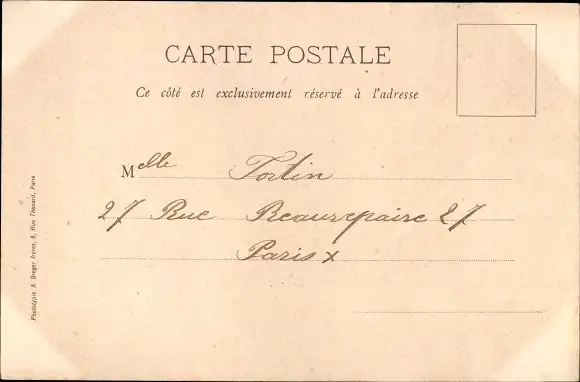 CARTE POSTALE
Ce côté est exclusivement réservé à l'adresse
Melle Fortin
27 Rue Beaurepaire 27
Paris x
Phototypie A. Breger frères, 9, Rue Thénard, Paris